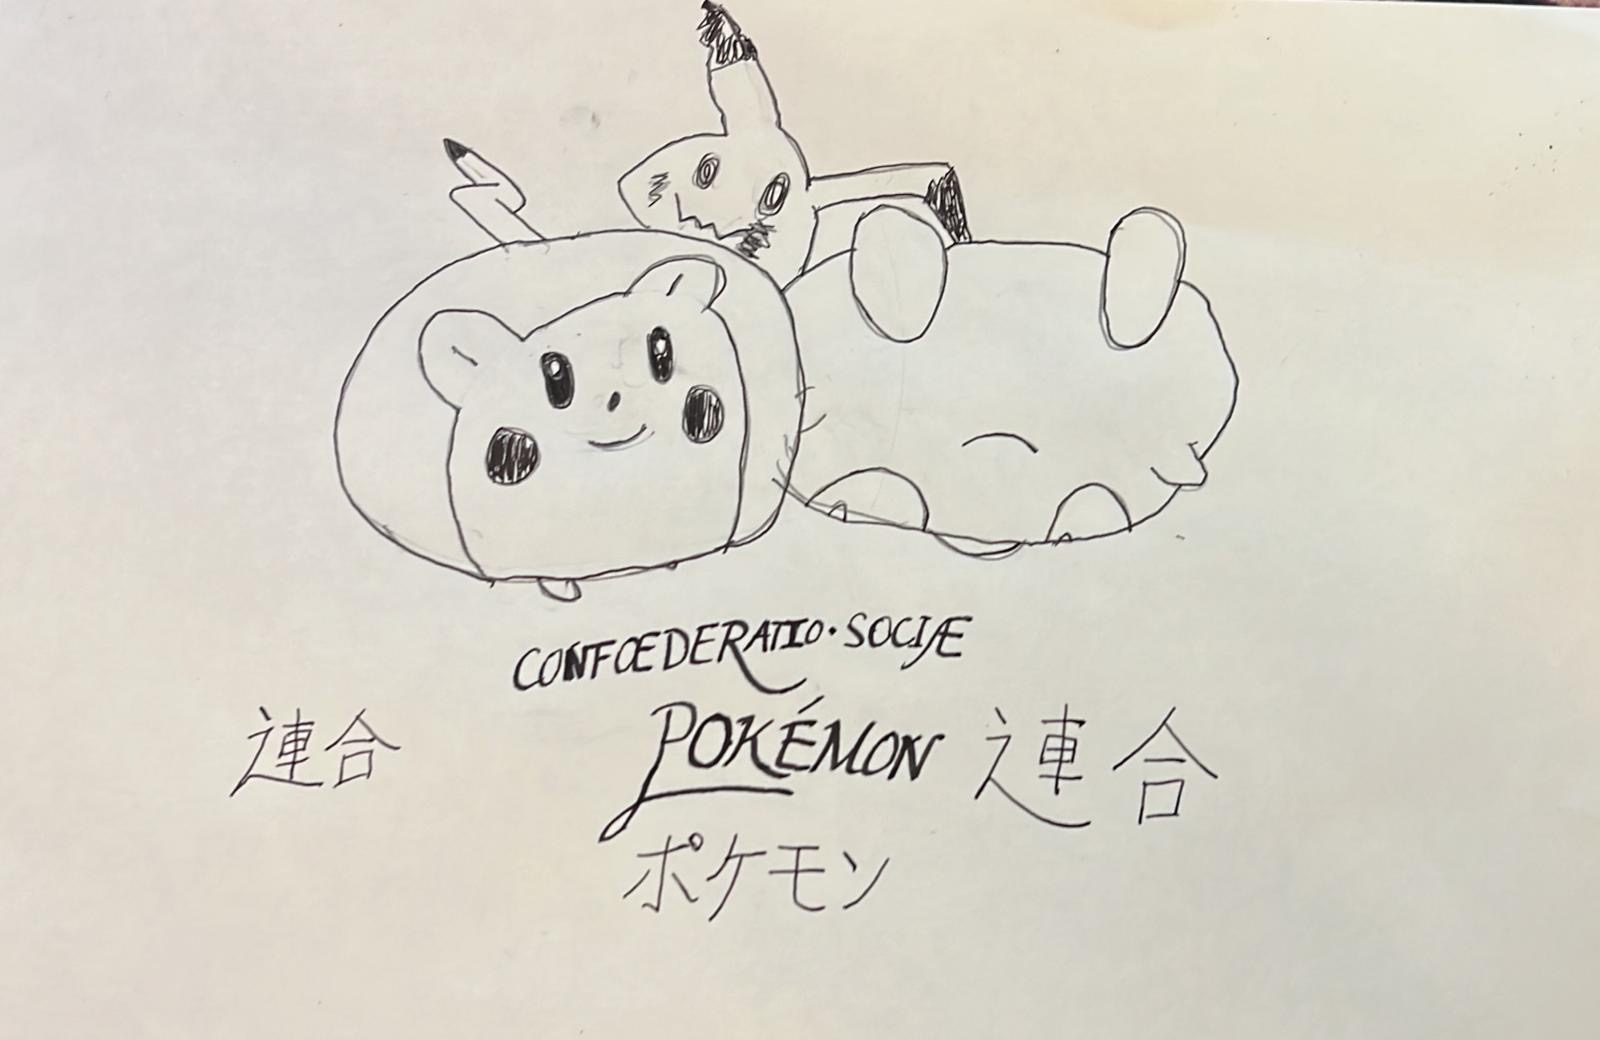 CONFŒDERATIO·SOCIÆ
連合 POKÉMON 連合
ポケモン